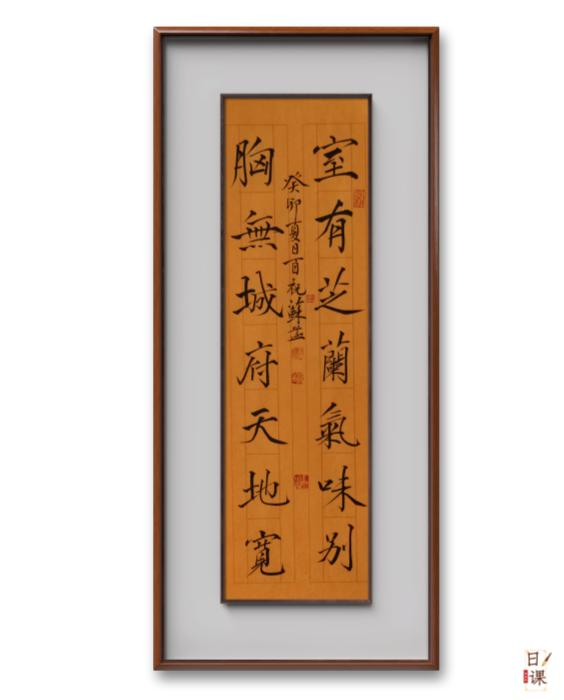 室有芝蘭氣味别
胸無城府天地寬
癸卯夏日百祝蘇盐
日课